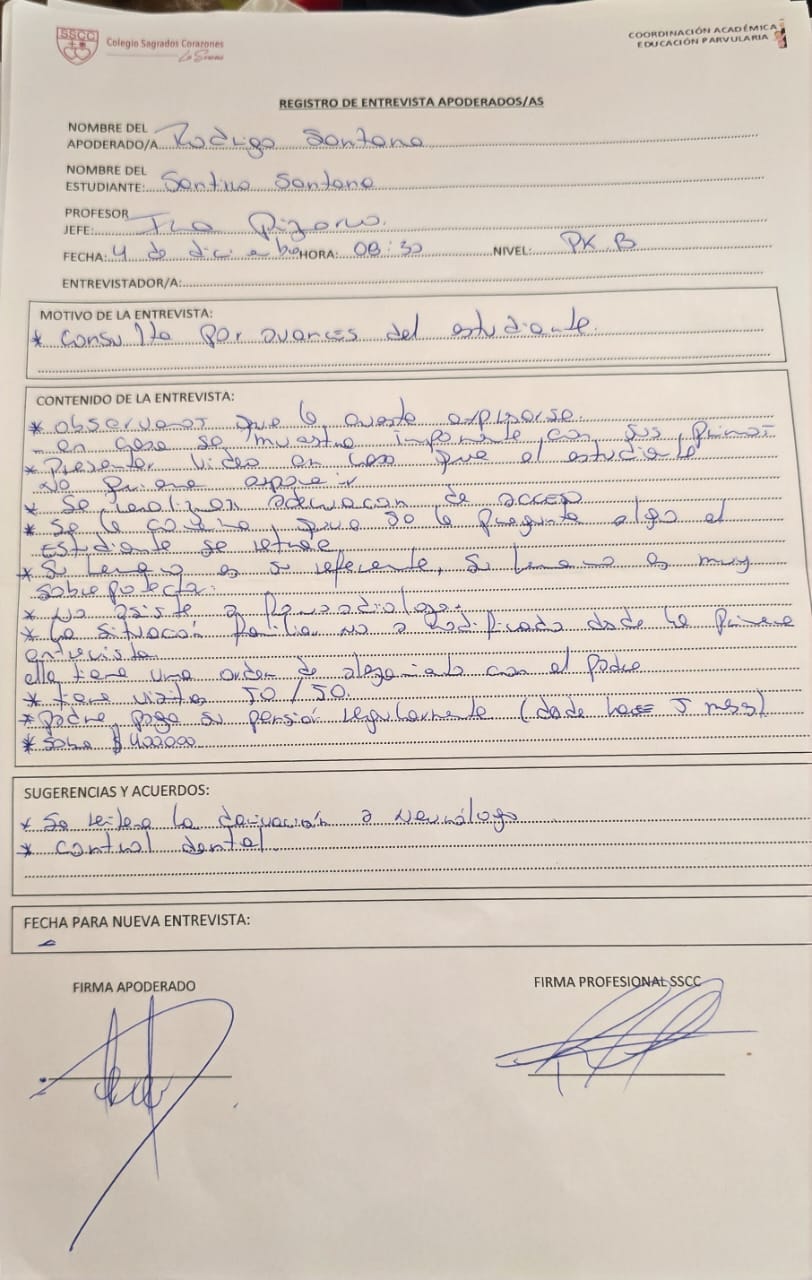 SSCC
Colegio Sagrados Corazones
La Serena
COORDINACIÓN ACADÉMICA
EDUCACIÓN PARVULARIA
REGISTRO DE ENTREVISTA APODERADOS/AS
NOMBRE DEL
APODERADO/A Rodrigo Santana
NOMBRE DEL
ESTUDIANTE: Santino Santana
PROFESOR
JEFE: Pizarro.
FECHA: 4 de diciembre HORA: 08:30 NIVEL: PK B
ENTREVISTADOR/A:
MOTIVO DE LA ENTREVISTA:
* Consulta por avances del estudiante.
CONTENIDO DE LA ENTREVISTA:
* observamos que le cuesta
en casa se muestra imponente con sus primos
* Presentar video en caso que el estudiante
no quiera
* Se realizan adecuación de acceso
* Se le que se le pregunta algo el
Estudiante se retrae
* Su es su referente, su es muy
sobreprotector.
* No asiste a Fonoaudiologo.
* La situación familiar no a modificado desde la primera
entrevista
ella tiene una orden de alejamiento con el padre
* tiene visitas 50/50.
* padre paga su pensión regularmente (desde hace 5 meses)
* sobre $400000
SUGERENCIAS Y ACUERDOS:
* Se reitera la derivación a Neurólogo
* Control dental
FECHA PARA NUEVA ENTREVISTA:
FIRMA APODERADO FIRMA PROFESIONAL SSCC